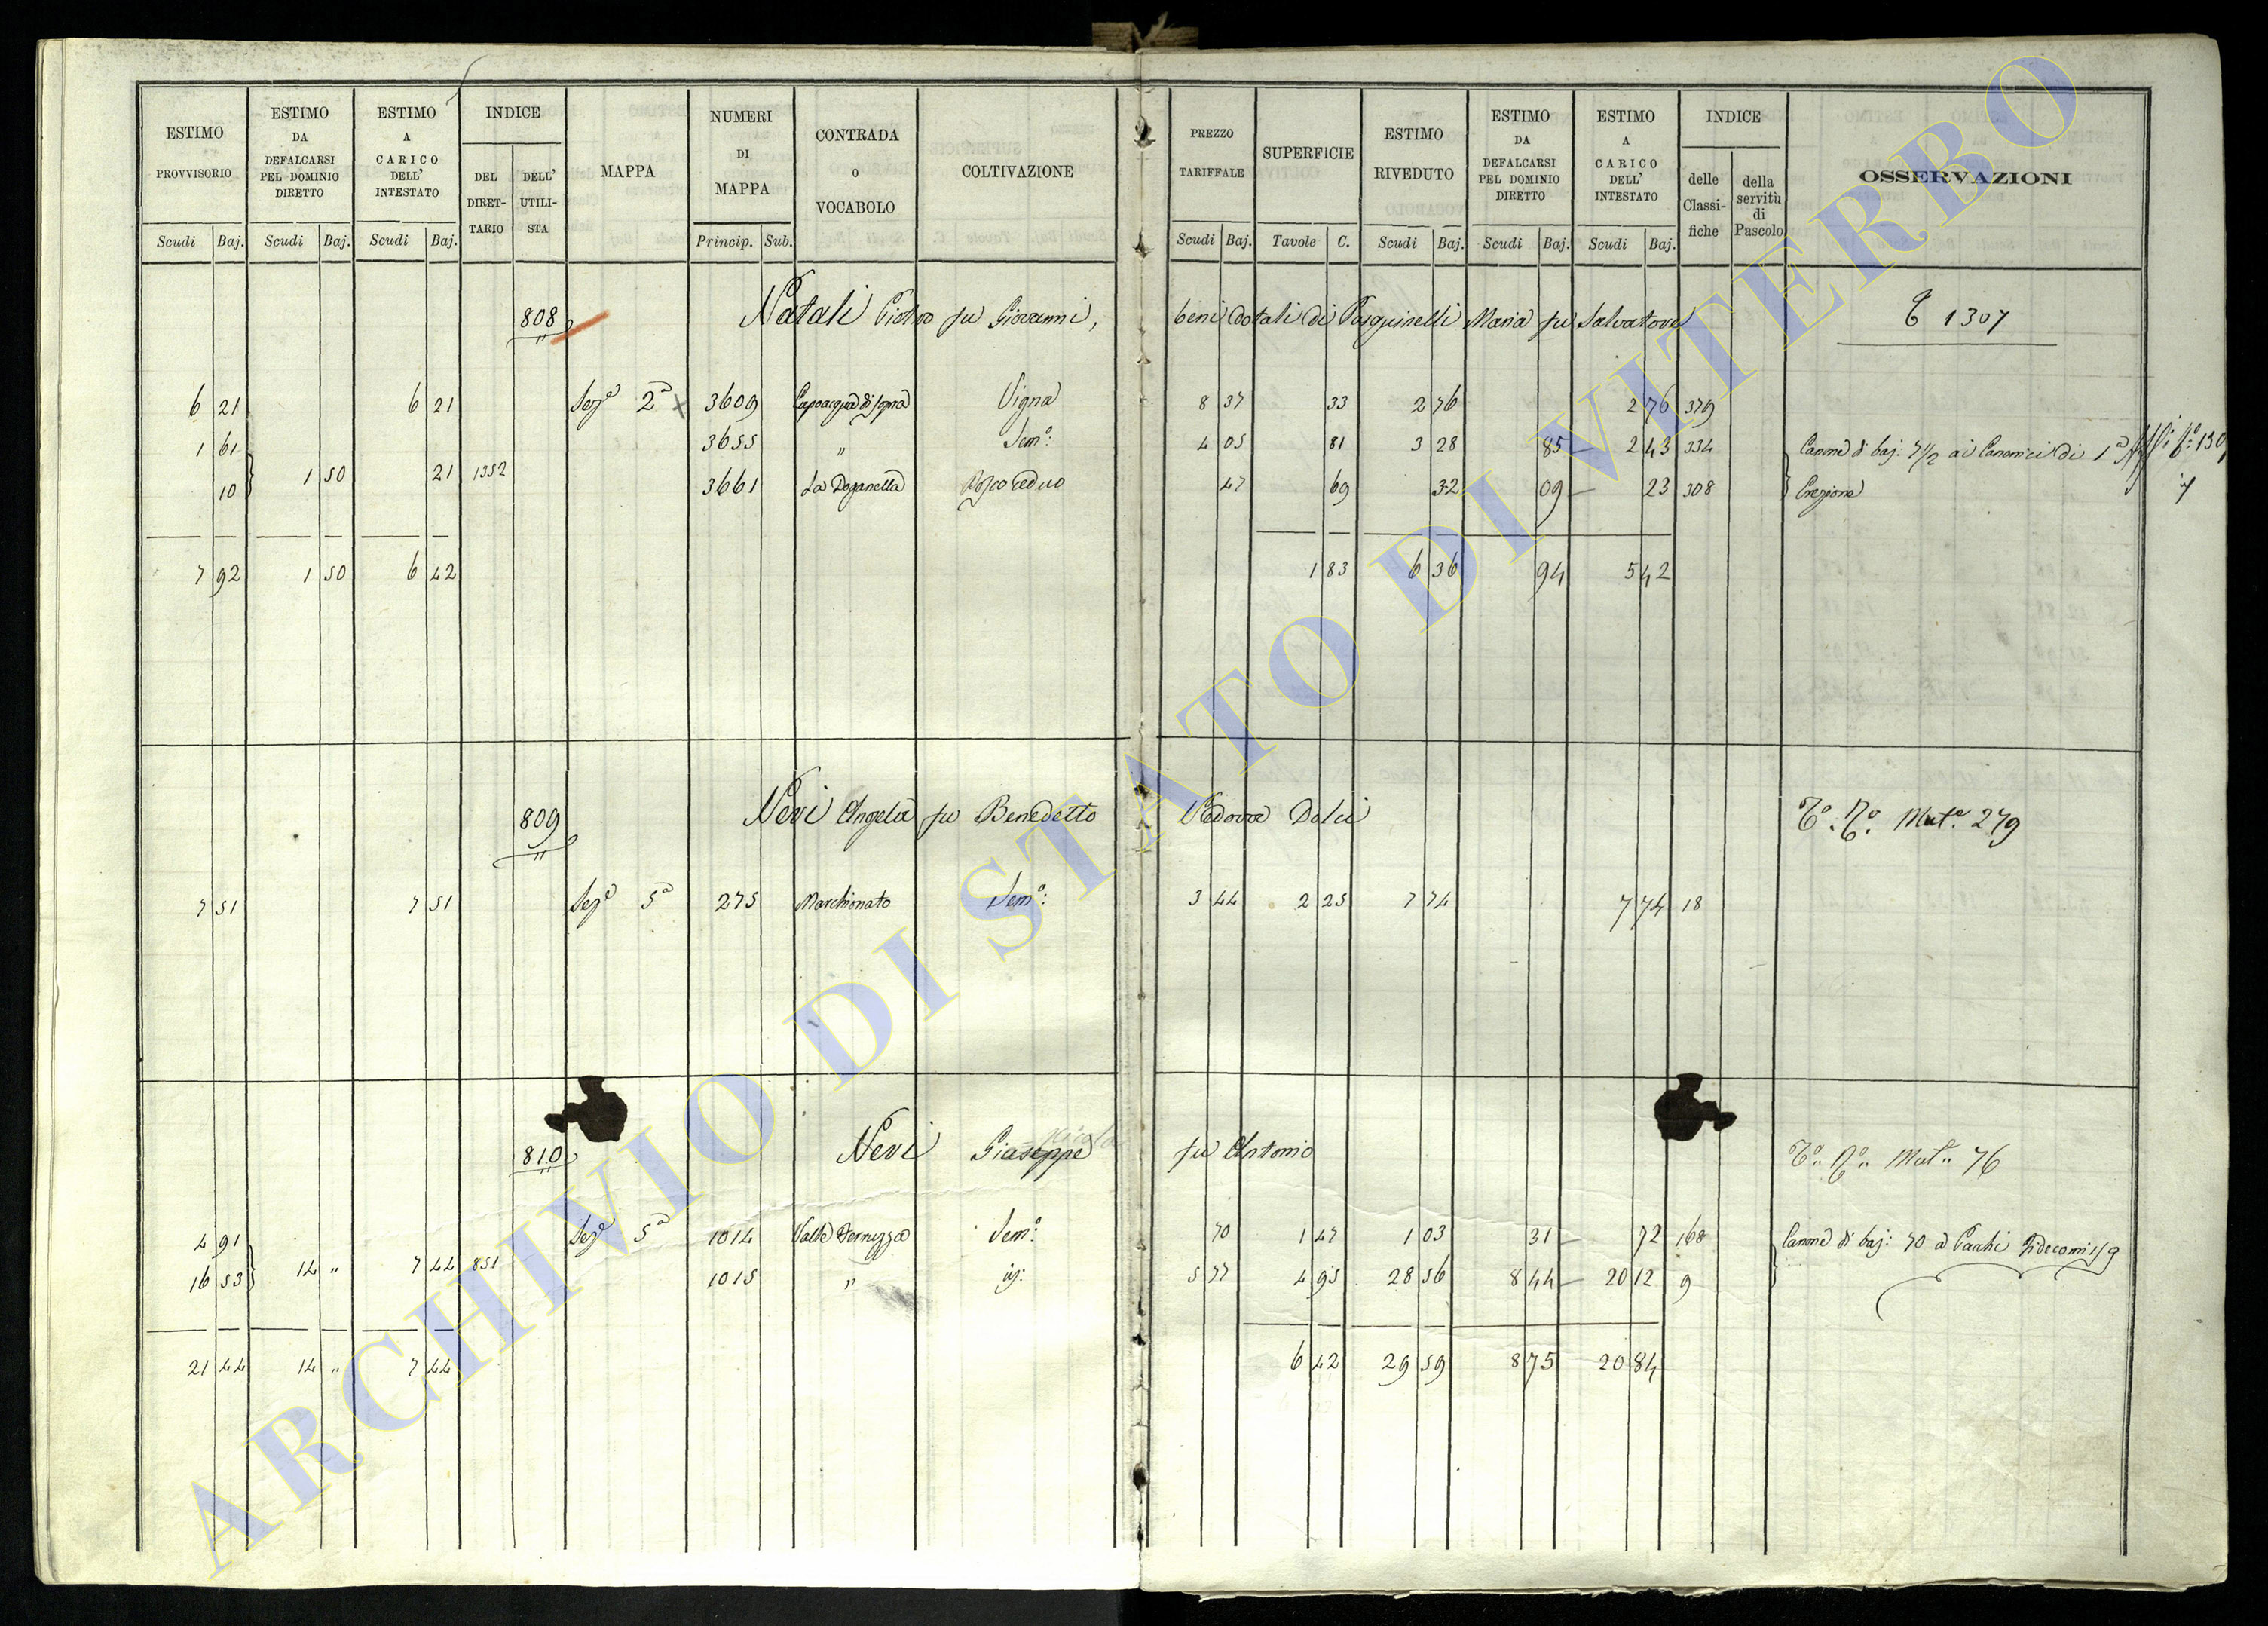 ESTIMO PROVVISORIO
ESTIMO DA DEFALCARSI PEL DOMINIO DIRETTO
ESTIMO A CARICO DELL' INTESTATO
INDICE
DEL DIRETTARIO
DELL' UTILISTA
MAPPA
NUMERI DI MAPPA
CONTRADA O VOCABOLO
COLTIVAZIONE
PREZZO TARIFFALE
SUPERFICIE
ESTIMO RIVEDUTO
ESTIMO DA DEFALCARSI PEL DOMINIO DIRETTO
ESTIMO A CARICO DELL' INTESTATO
INDICE
delle Classifiche
della servitù di Pascolo
OSSERVAZIONI
Scudi Baj. Scudi Baj. Scudi Baj. Princip. Sub. Scudi Baj. Tavole C. Scudi Baj. Scudi Baj. Scudi Baj.
808 Natali Pietro fu Giovanni, beni dotali di Pasquinelli Maria fu Salvatore 1307
6 21 6 21 Sezᵉ 2ᵃ 3609 Capoacqua di sopra Vigna 8 37 33 2 76 2 76 379
1 61 3655 " Semᵒ: 4 05 81 3 28 85 2 43 334 Canone di baj: 7 1/2 ai Canonici di 1ᵃ
10 1 50 21 1352 3661 La Doganella Bosco ceduo 47 69 32 09 23 308 Erezione
7 92 1 50 6 42 1 83 6 36 94 5 42
809 Nevi Angela fu Benedetto Vedova Dolci Mutᵃ 279
7 51 7 51 Sezᵉ 5ᵃ 275 Marchionato Semᵒ: 3 44 2 25 7 74 7 74 18
810 Nevi Giuseppe fu Antonio Mutᵃ 76
4 91 Sezᵉ 5ᵃ 1014 Valle Semᵒ: 70 1 47 1 03 31 72 168 Canone di baj: 70 a
16 53 14 " 7 44 851 1015 " id: 5 77 4 95 28 56 8 44 20 12 9
21 44 14 " 7 44 6 42 29 59 8 75 20 84
ARCHIVIO DI STATO DI VITERBO